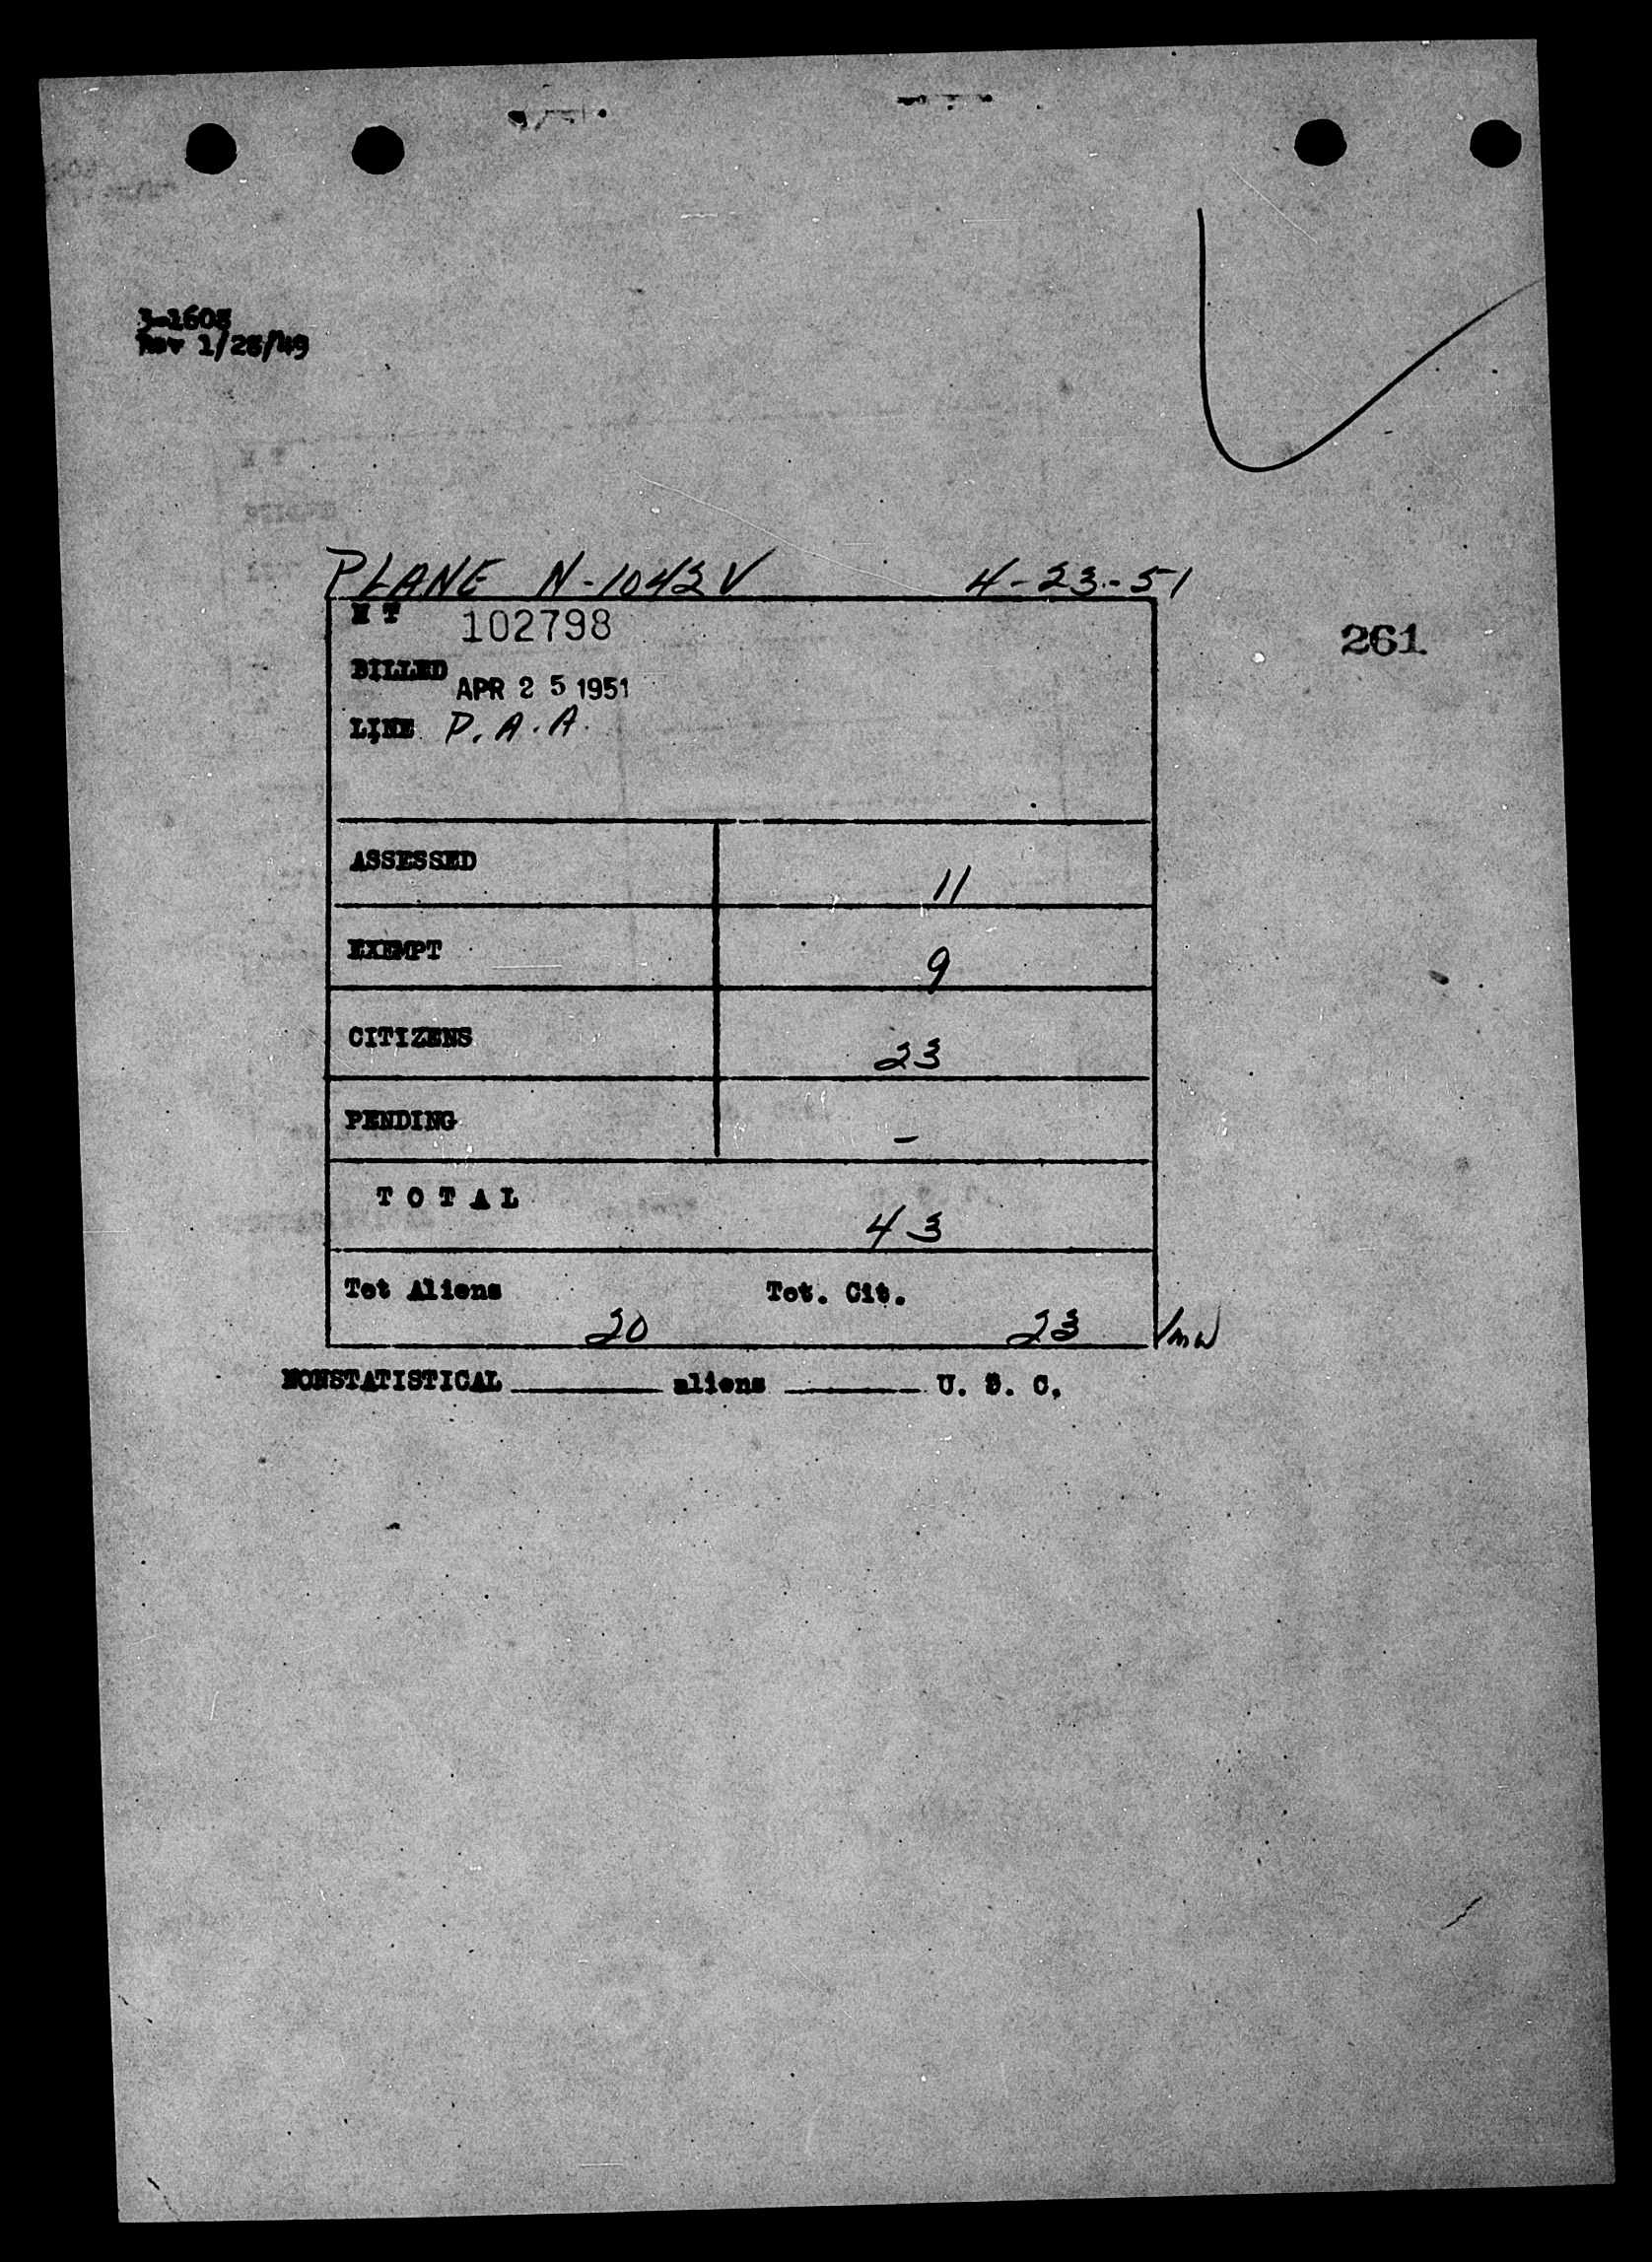 3-1603
Rev 1/28/49
PLANE N-1042V 4-23-51
H T 102798
261
BILLED APR 25 1951
LINE P.A.A.
ASSESSED 11
EXEMPT 9
CITIZENS 23
PENDING -
TOTAL 43
Tot Aliens 20 Tot. Cit. 23
NONSTATISTICAL aliens U. S. C.